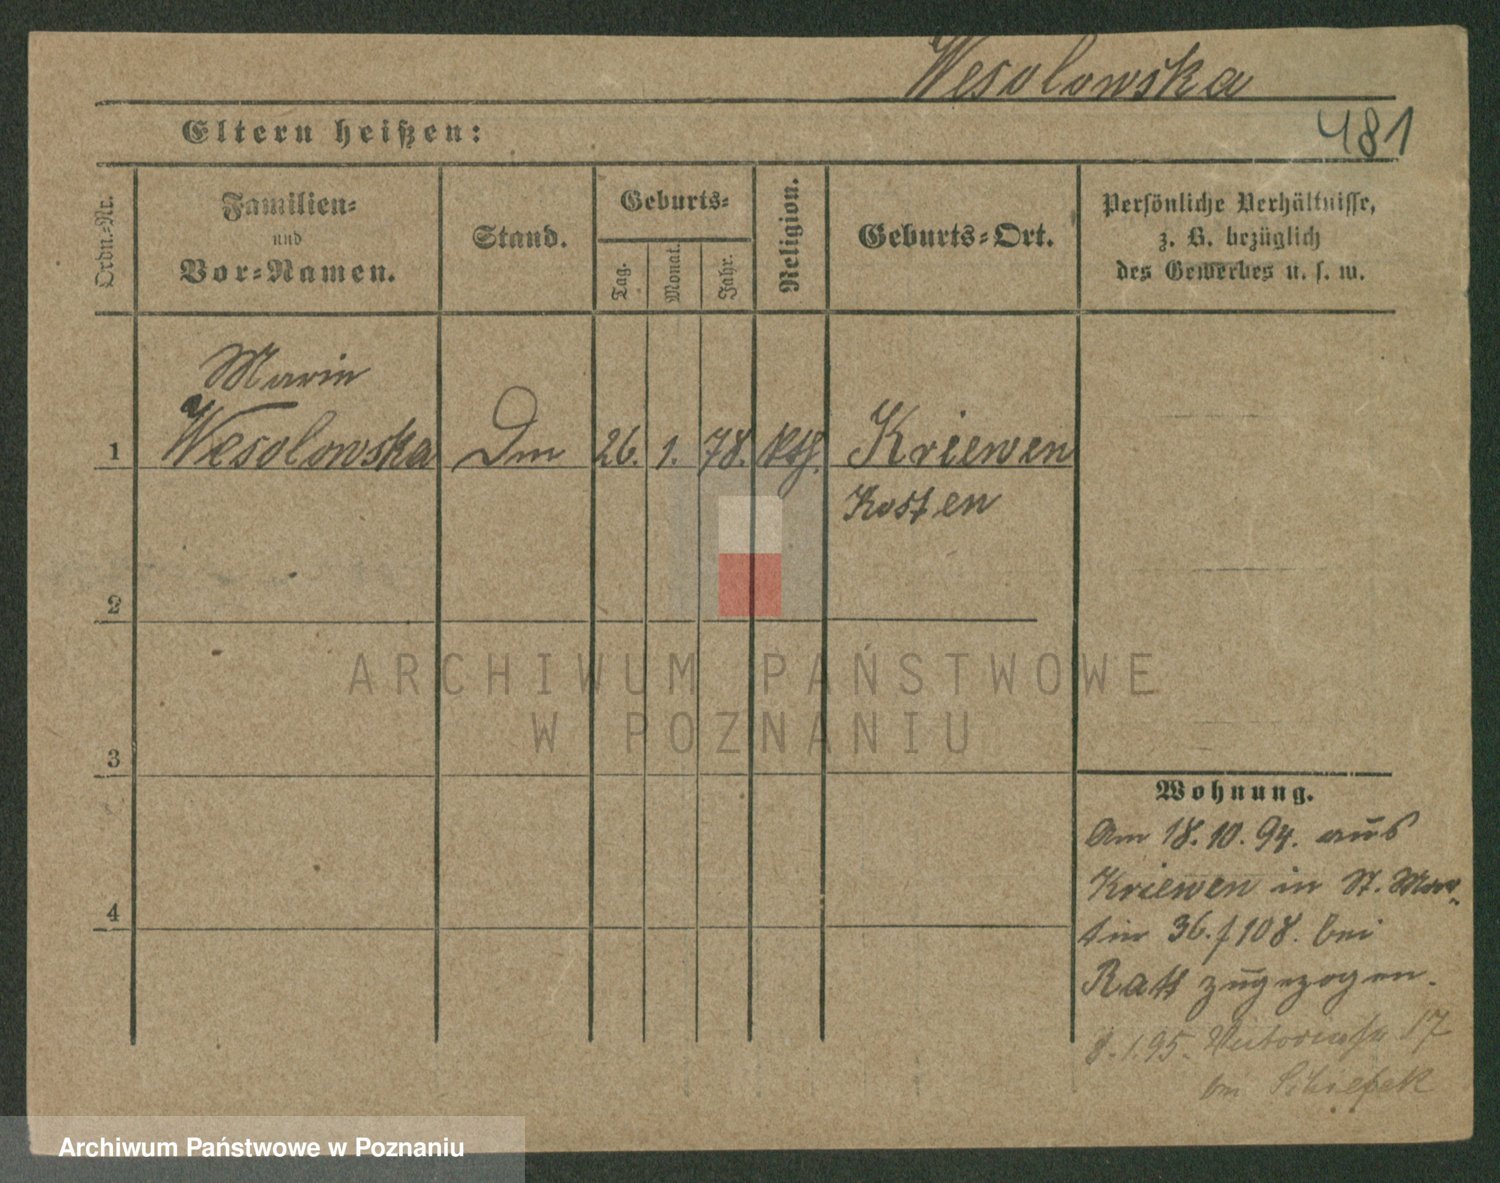 Wesolowska
481
Eltern heißen:
Ordn.-Nr.
Familien-
und
Vor-Namen.
Stand.
Geburts-
Tag.
Monat.
Jahr.
Religion.
Geburts-Ort.
Persönliche Verhältnisse,
z. B. bezüglich
des Gewerbes u. s. w.
Marie
1 Wesolowska 26. 1. 78. kth. Kriewen
Kosten
2
ARCHIWUM PAŃSTWOWE
W POZNANIU
3
Wohnung.
Am 18.10.94. aus
Kriewen in St. Mar-
4
tin 36./108. bei
Ratt zugezogen.
8.1.95. Victoriastr 17
bei
Archiwum Państwowe w Poznaniu